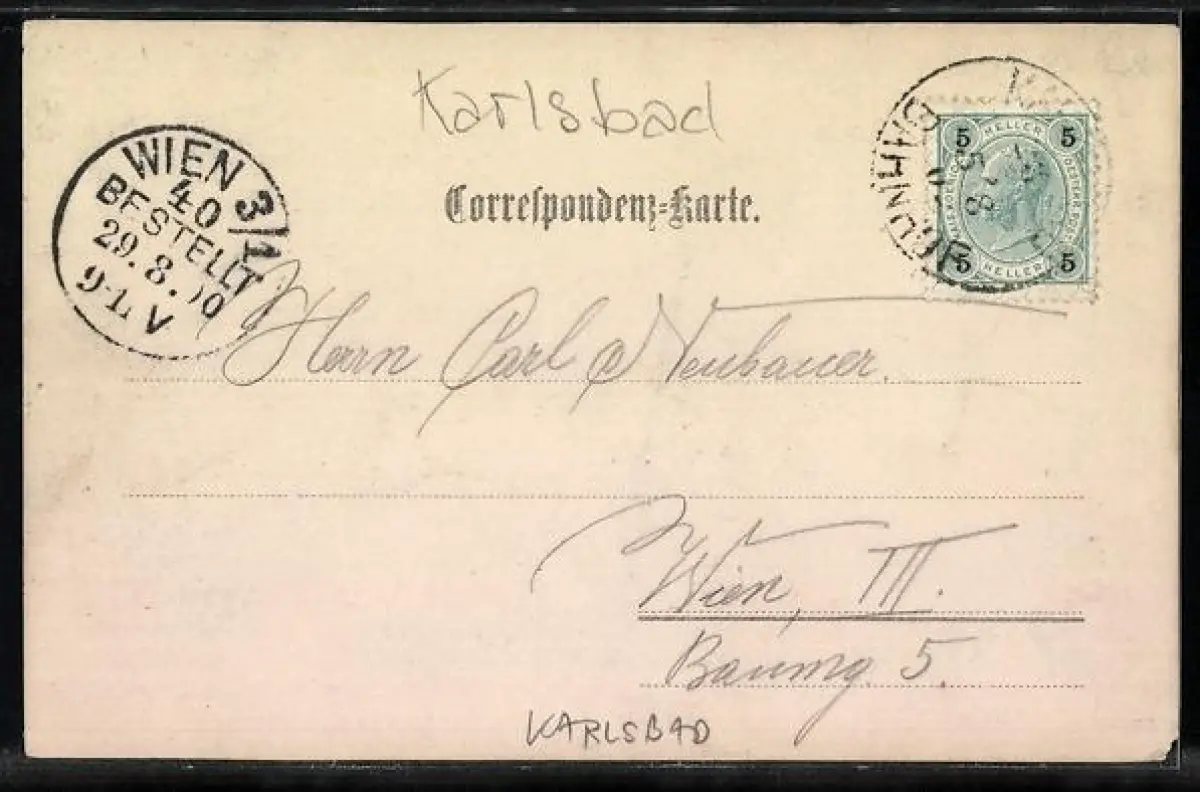 Karlsbad
Correspondenz-Karte.
WIEN 3/1
40
BESTELLT
29.8.00
9-11 V
5 HELLER 5
5 HELLER 5
BAHNHOF
Herrn Carl Neubauer.
Wien, III.
Baumg 5.
KARLSBAD